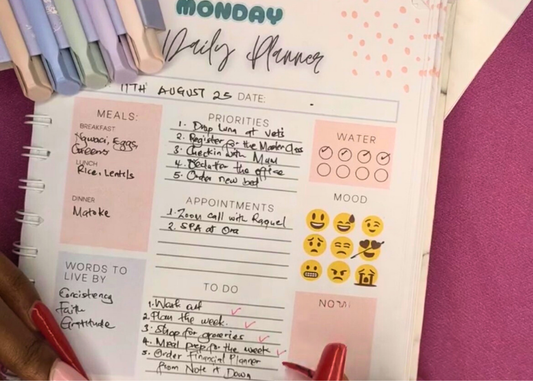 MONDAY
Daily Planner
11TH AUGUST 25 DATE:
MEALS:
BREAKFAST
Nguaci, Eggs
Greens
LUNCH
Rice, Lentils
DINNER
Matoke
PRIORITIES
1. Drop Luna at vets
2. Register for the MasterClass
3. Checkin with Mum
4. for the office
5. Order new
WATER
APPOINTMENTS
1. Zoom call with Raquel
2. SPA at
MOOD
WORDS TO
LIVE BY
Consistency
Faith
Gratitude
TO DO
1. Work out
2. Plan the week.
3. Shop for groceries
4. Meal prep for the week
5. Order Financial Planner
from Note it Down